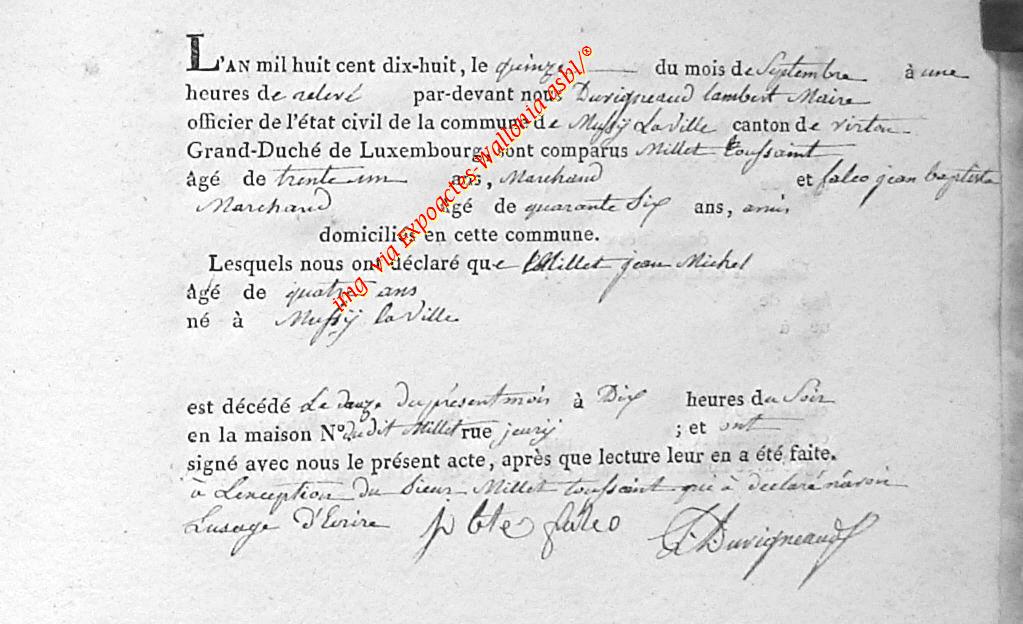 L'AN mil huit cent dix-huit, le quinze du mois de Septembre à une
heures de relevé par-devant nous Duvigneaud lambert Maire
officier de l'état civil de la commune de Mussÿ La Ville canton de virton
Grand-Duché de Luxembourg, sont comparus Millet toussaint
âgé de trente un ans, Marchand et falco jean baptiste
Marchand âgé de quarante Six ans, amis
domiciliés en cette commune.
Lesquels nous ont déclaré que Millet jean Michel
âgé de quatre ans
né à Mussÿ la Ville
est décédé Le douze du présent mois à Dix heures du Soir
en la maison N° dudit Millet rue ; et ont
signé avec nous le présent acte, après que lecture leur en a été faite.
à L'exception du Sieur Millet toussaint qui à déclaré n'avoir
L'usage d'Ecrire j bte falco Duvigneaud
img via Expoactes-Wallonia asbl/®